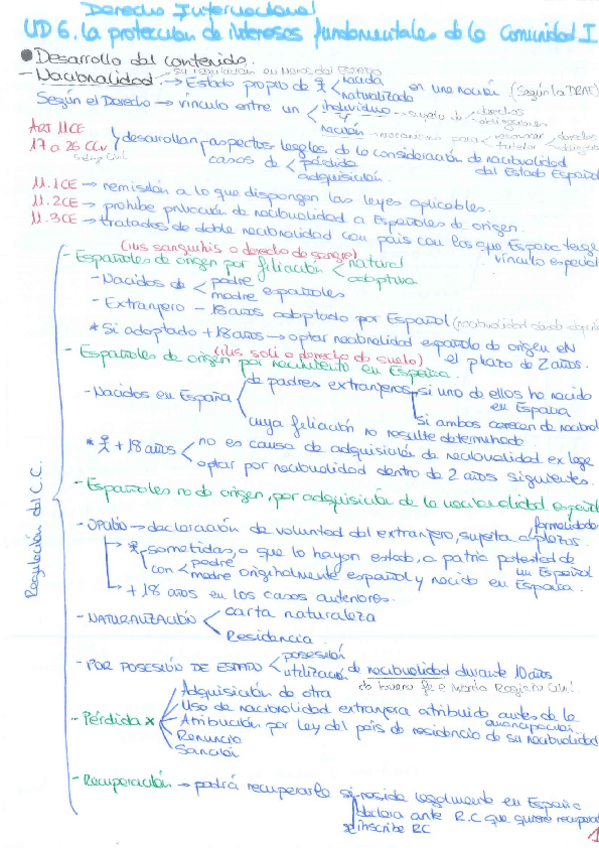 Derecho Internacional
UD 6. La protección de intereses fundamentales de la Comunidad I
● Desarrollo del contenido.
su regulación en manos del Estado
- Nacionalidad. → Estado propio de nacida
naturalizado en una nación (Según la DRAE)
Según el Derecho → vínculo entre un individuo sujeto de derechos
obligaciones
y
nación para reconocer derechos
tutelar
Art 11 CE
17 a 26 CCv desarrollan aspectos legales de la consideración de nacionalidad
casos de pérdida del Estado Español
adquisición.
11.1CE → remisión a lo que dispongan las leyes aplicables.
11.2CE → prohibe privación de nacionalidad a Españoles de origen.
11.3CE → tratados de doble nacionalidad con país con los que España tenga
vínculo especial
Regulación del C.C.
(ius sanguinis o derecho de sangre)
- Españoles de origen por filiación natural
adoptiva
- Nacidos de padre
madre españoles
- Extranjero - 18 años adoptado por Español
* Si adoptado +18 años → optar nacionalidad española de origen en
el plazo de 2 años.
(ius soli o derecho de suelo)
- Españoles de origen por nacimiento en España.
- Nacidos en España de padres extranjeros, si uno de ellos ha nacido
en España
si ambos carecen de nacional
cuya filiación no resulte determinada
* +18 años no es causa de adquisición de nacionalidad ex lege
optar por nacionalidad dentro de 2 años siguientes.
- Españoles no de origen, por adquisición de la nacionalidad español
- OPCIÓN → declaración de voluntad del extranjero, sujeta a formalidade
plazos.
sometidas, o que lo hayan estado, a patria potestad de
un Español
con padre
madre originalmente español y nacido en España.
+ 18 años en los casos anteriores.
- NATURALIZACIÓN carta naturaleza
Residencia.
- POR POSESIÓN DE ESTADO posesión
utilización de nacionalidad durante 10 años
de buena fe
- Pérdida x Adquisición de otra
Uso de nacionalidad extranjera atribuida antes de la
emancipación
Atribución por ley del país de residencia de su nacionalidad
Renuncia
Sanción
- Recuperación → podrá recuperarla si reside legalmente en España
declara ante R.C que quiere recuperar
se inscribe RC
1